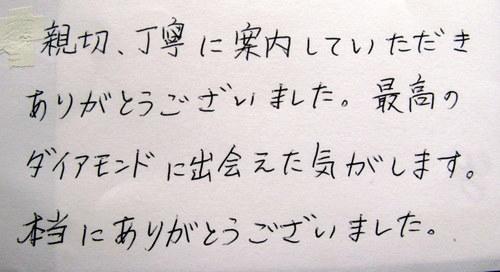 親切、丁寧に案内していただき
ありがとうございました。最高の
ダイアモンドに出会えた気がします。
本当にありがとうございました。